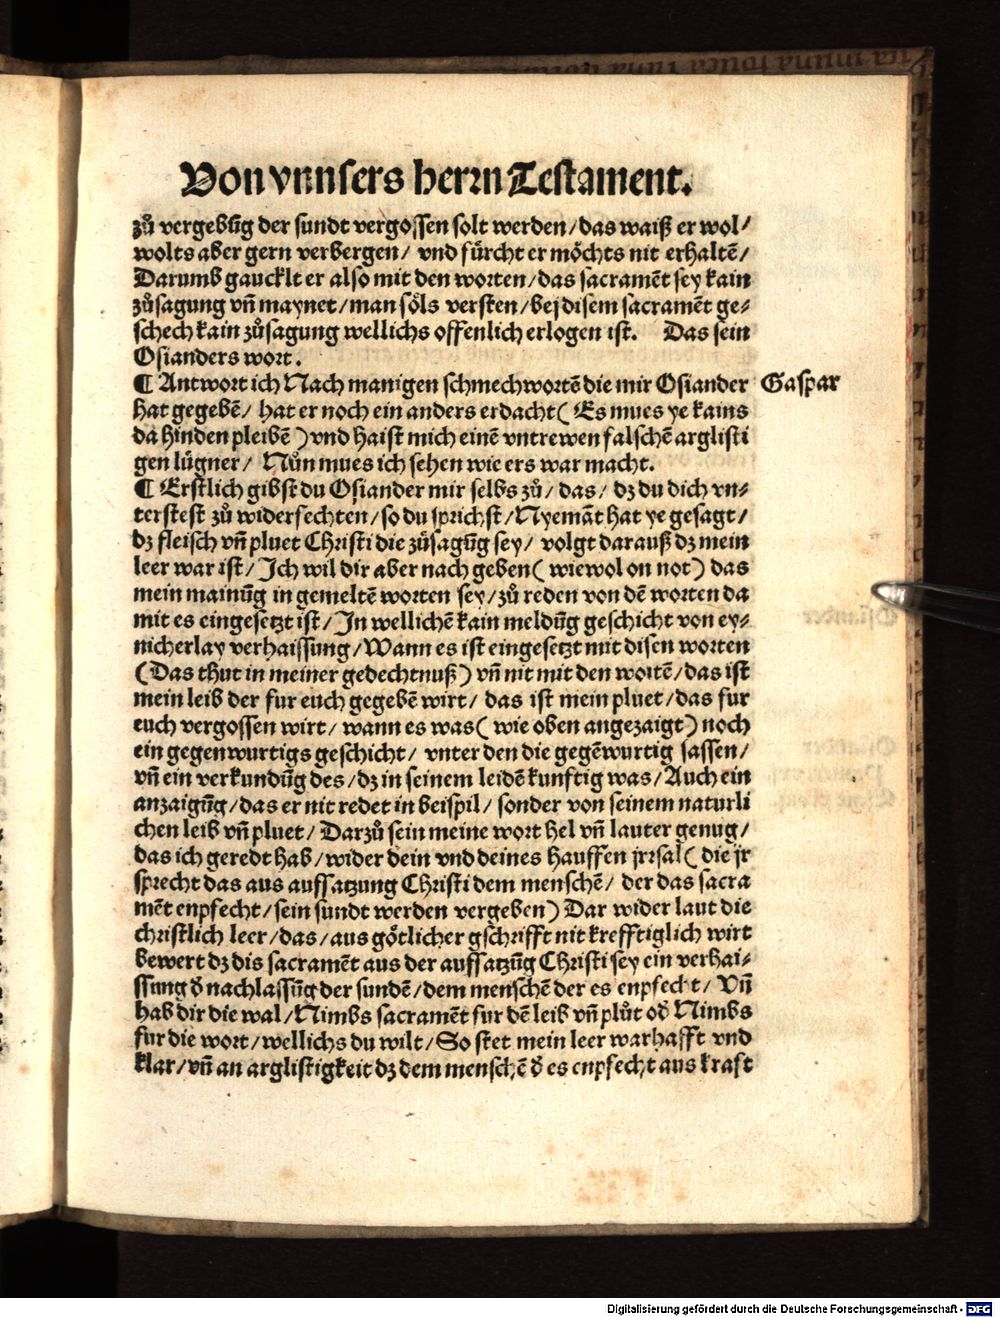 Von vnnsers herrn Testament.
zů vergebūg der sundt vergossen solt werden/das waiß er wol/
wolts aber gern verbergen/ vnd fürcht er möchts nit erhaltē/
Darumb gaucklt er also mit den worten/das sacramēt sey kain
zůsagung vñ maynet/man söls versten/bej disem sacramēt ge-
schech kain zůsagung wellichs offenlich erlogen ist. Das sein
Osianders wort.
¶ Antwort ich Nach manigen schmechwortē die mir Osiander Gaspar
hat gegebē/ hat er noch ein anders erdacht( Es mues ye kains
da hinden pleibē )vnd haist mich einē vntrewen falschē arglisti
gen lügner/ Nůn mues ich sehen wie ers war macht.
¶ Erstlich gibst du Osiander mir selbs zů/ das/ dz du dich vn-
terstest zů widerfechten/so du sprichst/Nyemāt hat ye gesagt/
dz fleisch vñ pluet Christi die zůsagūg sey/ volgt darauß dz mein
leer war ist/ Ich wil dir aber nach geben( wiewol on not) das
mein mainūg in gemeltē worten sey/zů reden von dē worten da
mit es eingesetzt ist/ In wellichē kain meldūg geschicht von ey-
nicherlay verhaissung/Wann es ist eingesetzt mit disen worten
(Das thut in meiner gedechtnuß) vñ nit mit den wortē/das ist
mein leib der fur euch gegebē wirt/ das ist mein pluet/das fur
euch vergossen wirt/ wann es was( wie oben angezaigt) noch
ein gegenwurtigs geschicht/ vnter den die gegēwurtig sassen/
vñ ein verkundūg des/dz in seinem leidē kunftig was/Auch ein
anzaigūg/das er nit redet in beispil/ sonder von seinem naturli
chen leib vñ pluet/ Darzů sein meine wort hel vñ lauter genug/
das ich geredt hab/wider dein vnd deines hauffen jrrsal( die jr
sprecht das aus auffatzung Christi dem menschē/ der das sacra
mēt enpfecht/sein sundt werden vergeben) Dar wider laut die
christlich leer/das/aus götlicher gschrifft nit krefftiglich wirt
bewert dz dis sacramēt aus der auffatzūg Christi sey ein verhai-
ssung d̄ nachlassūg der sundē/dem menschē der es enpfecht/ Vñ
hab dir die wal/Nimbs sacramēt fur dē leib vñ plůt od̄ Nimbs
fur die wort/wellichs du wilt/So stet mein leer warhafft vnd
klar/vñ an arglistigkeit dz dem menschē d̄ es enpfecht aus kraft
Digitalisierung gefördert durch die Deutsche Forschungsgemeinschaft - DFG